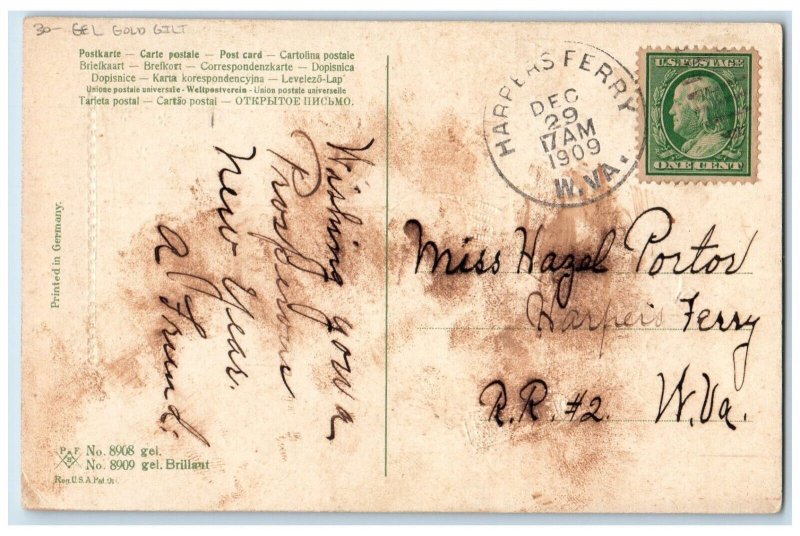 30- GEL GOLD GILT
Postkarte — Carte postale — Post card — Cartolina postale
Briefkaart — Brefkort — Correspondenzkarte — Dopisnica
Dopisnice — Karta korespondencyjna — Levelező-Lap
Unione postale universale - Weltpostverein - Union postale universelle
Tarjeta postal — Cartão postal — ОТКРЫТОЕ ПИСЬМО.
HARPERS FERRY
DEC
29
7AM
1909
W.VA.
U.S. POSTAGE
ONE CENT
Wishing you a
Prosperous
New Year.
A Friend.
Printed in Germany.
Miss Hazel Porter
Harpers Ferry
R.R. #2. W.Va.
P F
No. 8908 gel.
No. 8909 gel. Brillant
Reg. U.S.A. Pat. Of.